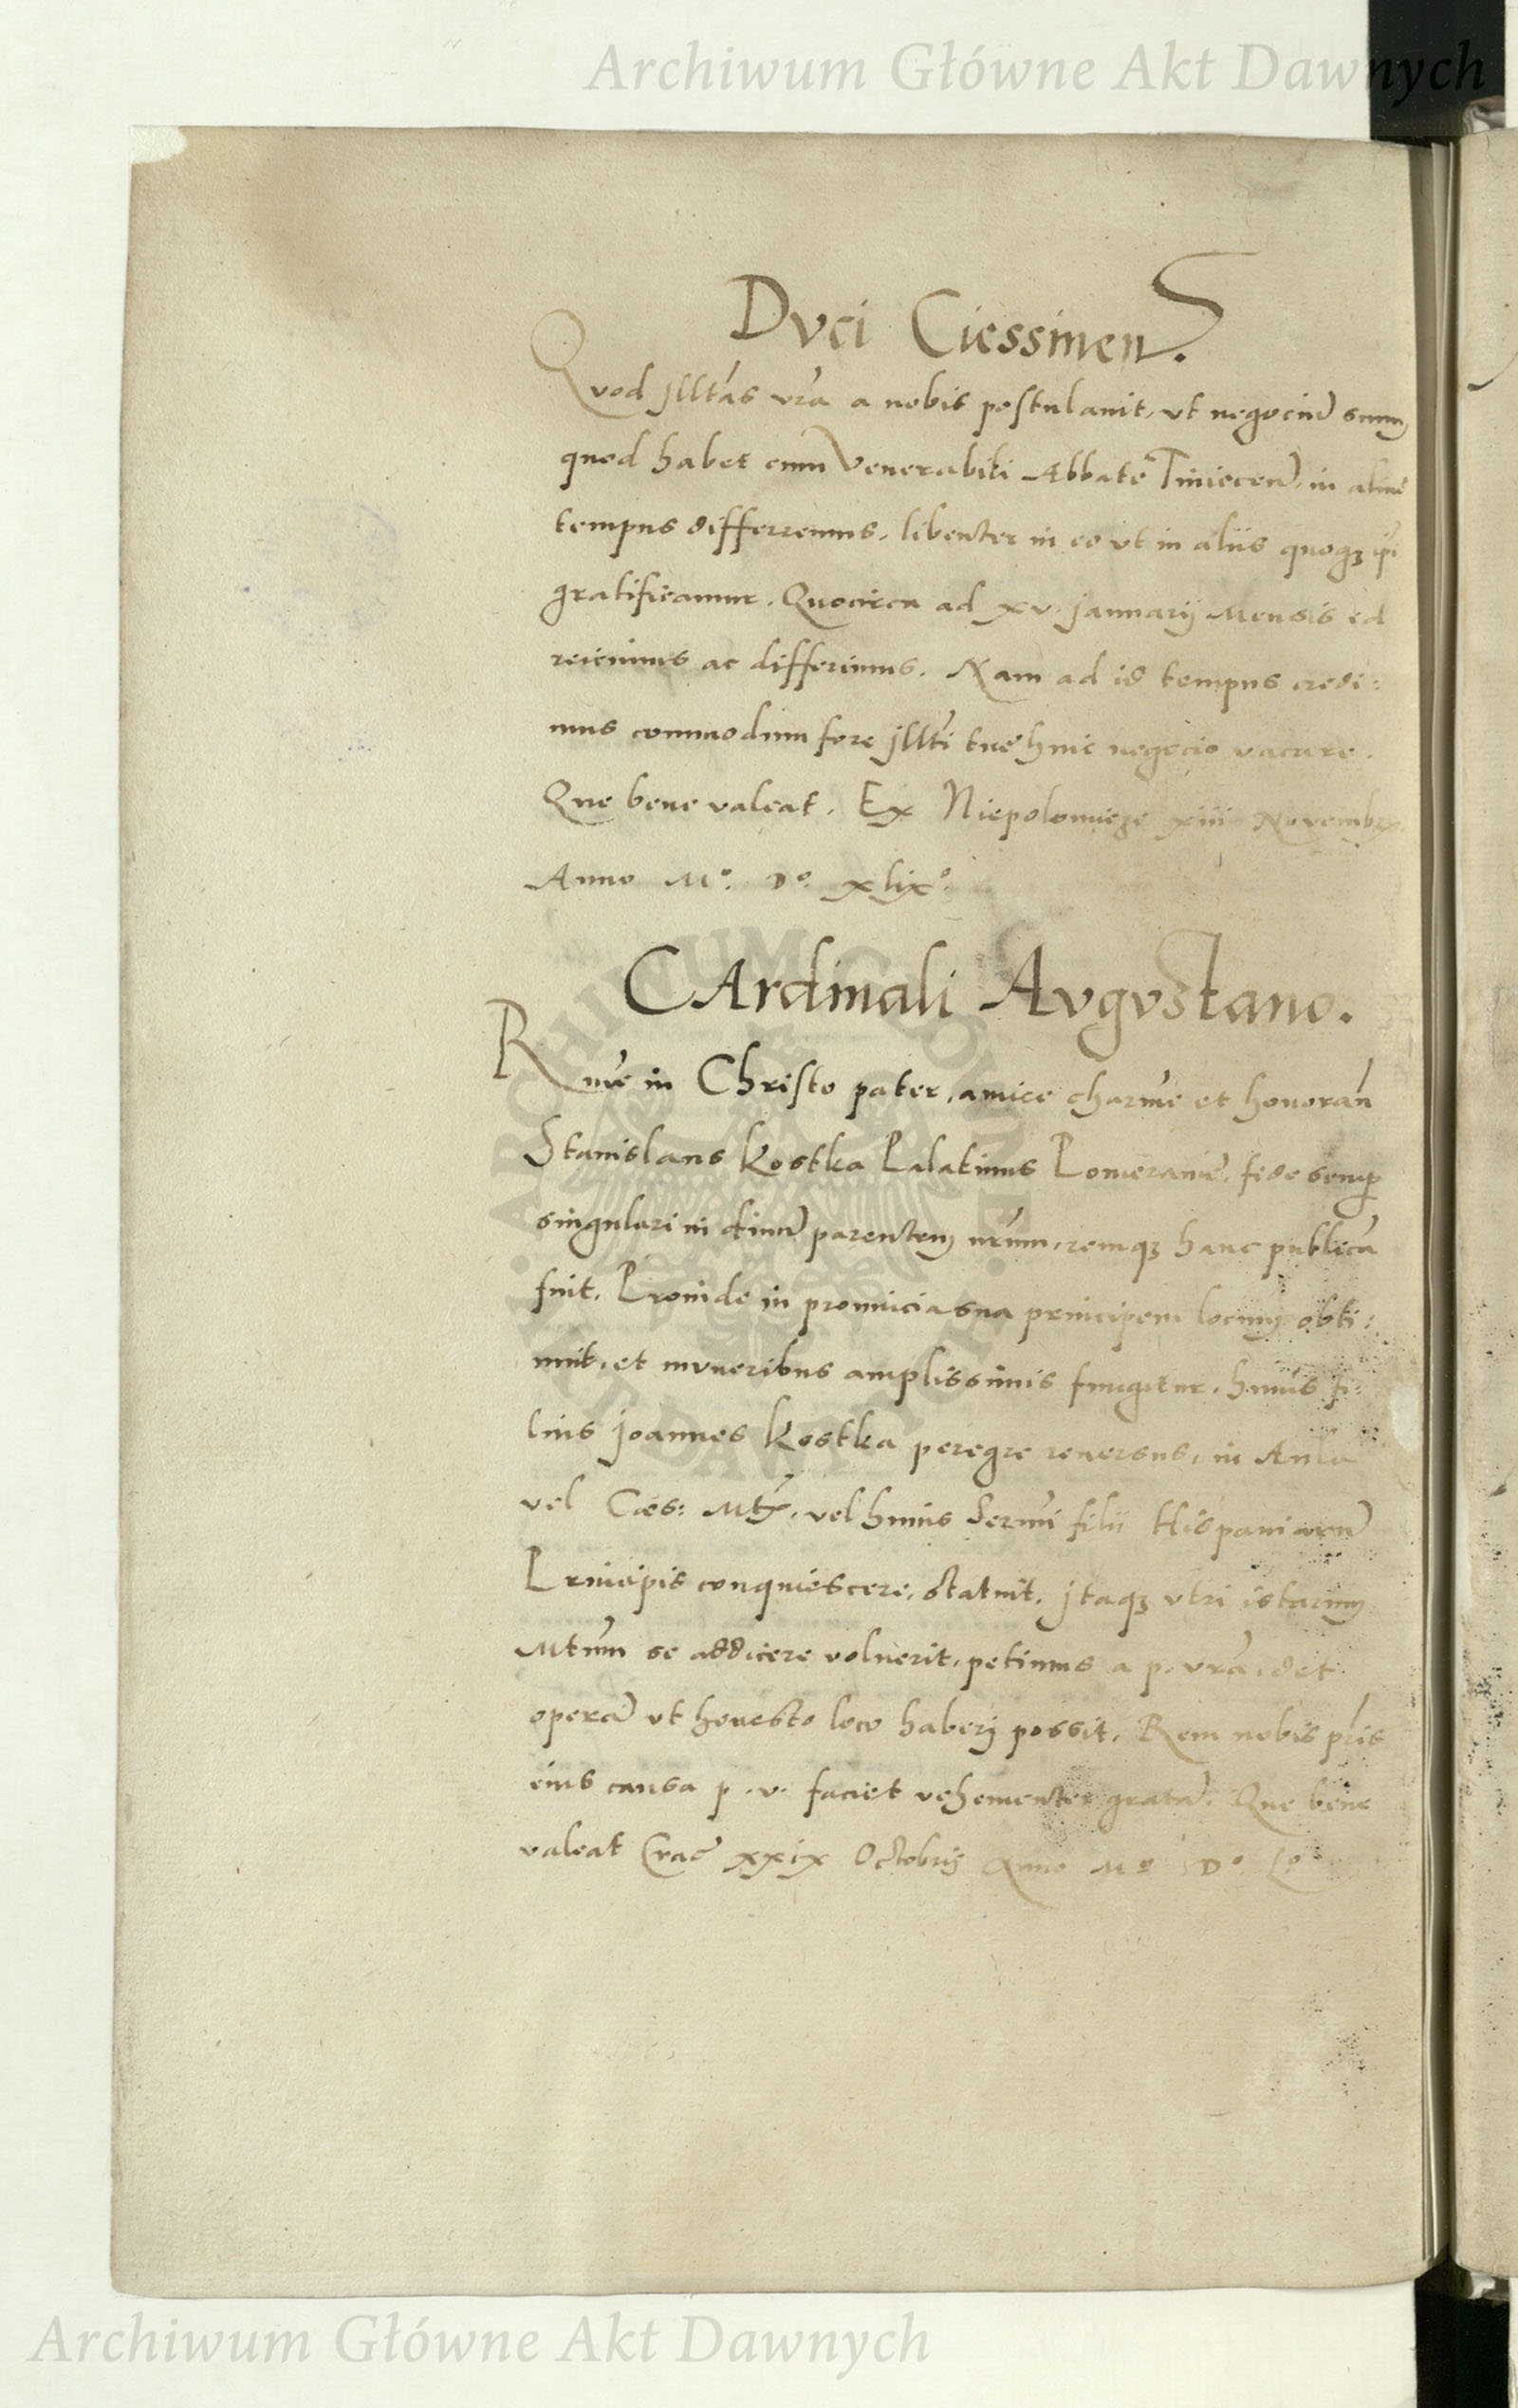 Archiwum Główne Akt Dawnych
Dvci Ciessinen̄.
Quod Jlltās vrā a nobis postulauit, vt negociū suum
quod habet cum Venerabili Abbate Tiniecen̄, in aliud
tempus differremus, libenter in eo vt in aliis quoqꝫ ip̄i
gratificamur. Quocirca ad xv. Januarij Mensis id
reicimus ac differimus. Nam ad id tempus credi:
mus commodum fore Jlltī tuę huic negocio vacare.
Que bene valeat. Ex Niepolomicze xiii Novembris
Anno Mº. Dº. xlixº.
CArdinali Avgvstano.
Rm̄e in Christo pater, amice charm̄e et honoran̄
Stanislaus Kostka Palatinus Pomeranię, fide semp̄
singulari in diuū parentem nr̄um, remqꝫ hanc publicā
fuit. Proinde in prouincia sua principem locum obti:
nuit, et mvneribus amplissimis fungitur. huius fi:
lius Joannes Kostka peregre reuersus, in Aula
vel Caes: Mtis, vel huius Sermī filii Hispaniarū
Principis conquiescere, statuit. Jtaqꝫ vtri istarum
Mtum̄ se addicere voluerit, petimus a p. vrā, det
operā vt honesto loco haberj possit. Rem nobis pr̄is
eius causa p. v. faciet vehementer gratā. Que bene
valeat Crac̄ xxix Octobris Anno Mº Dº Lº
Archiwum Główne Akt Dawnych